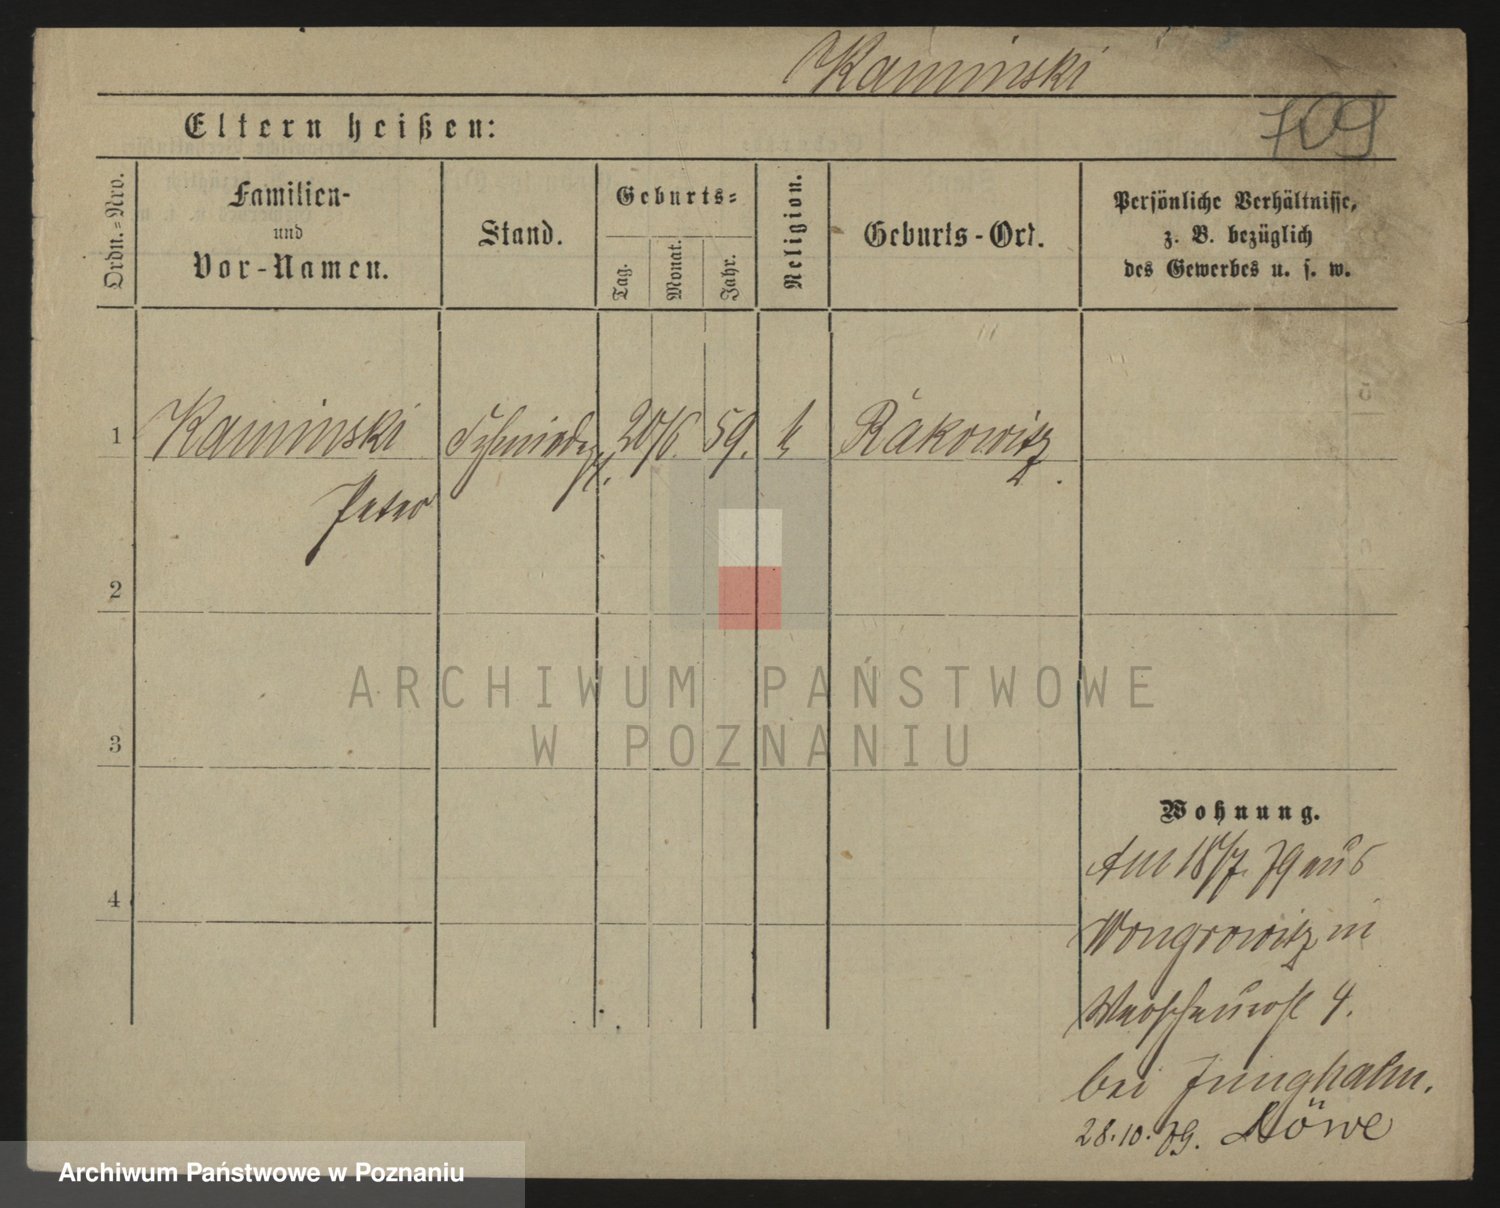 Kaminski
709
Eltern heißen:
Ordn.=Nro.
Familien-
und
Vor-Namen.
Stand.
Geburts=
Tag.
Monat.
Jahr.
Religion.
Geburts-Ort.
Persönliche Verhältnisse,
z. B. bezüglich
des Gewerbes u. s. w.
1 Kaminski 20/6. 59. k Rakowitz.
Peter
2
3
4
ARCHIWUM PAŃSTWOWE
W POZNANIU
Wohnung.
Am 18/7. 79 aus
Wongrowitz in
4.
bei Junghahn.
28.10.79. Löwe
Archiwum Państwowe w Poznaniu